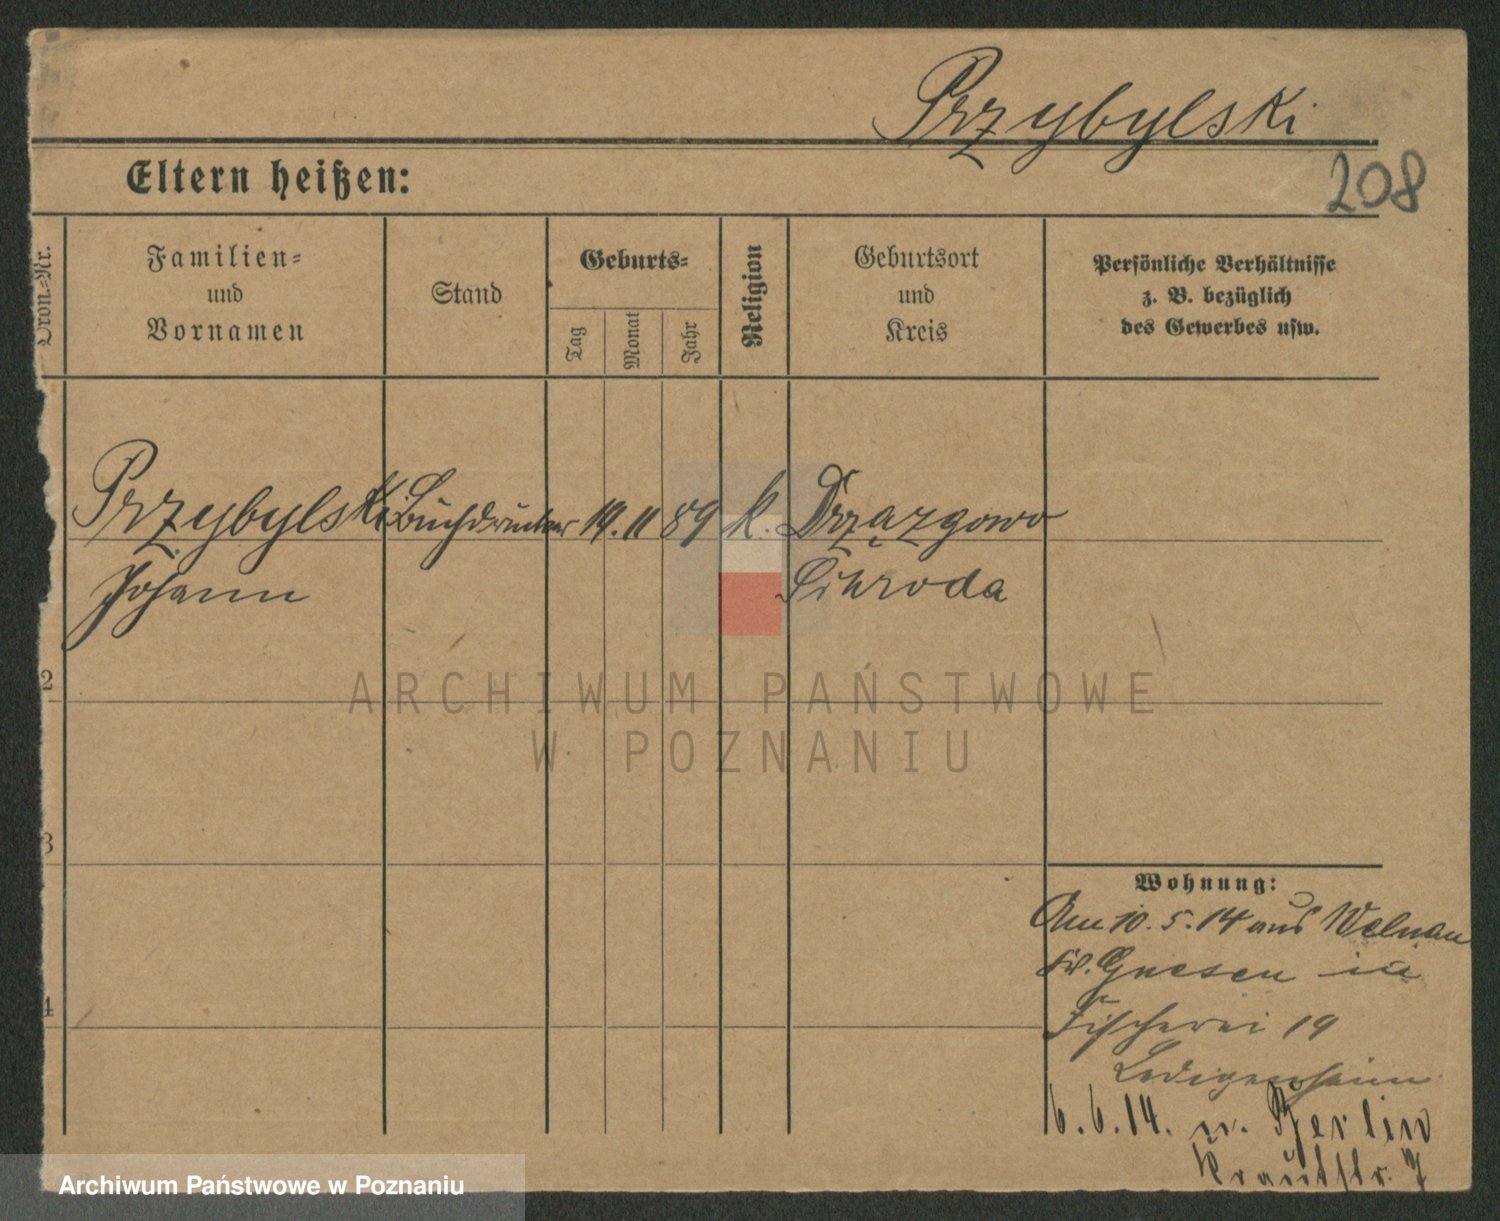 Przybylski
208
Eltern heißen:
Ordn.=Nr.
Familien=
und
Vornamen
Stand
Geburts=
Tag
Monat
Jahr
Religion
Geburtsort
und
Kreis
Persönliche Verhältnisse
z. B. bezüglich
des Gewerbes usw.
Przybylski Buchdrucker 19. 11 89 k. Drzązgowo
Johann Schroda
2
ARCHIWUM PAŃSTWOWE
W POZNANIU
3
4
Wohnung:
Am 10. 5. 14 aus Welnau
Kr. Gnesen in
Fischerei 19
Ledigenheim
6. 6. 14. n. Berlin
Krautstr. 7
Archiwum Państwowe w Poznaniu